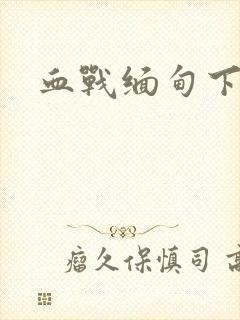 血戰缅甸下
瘤久保慎司 高